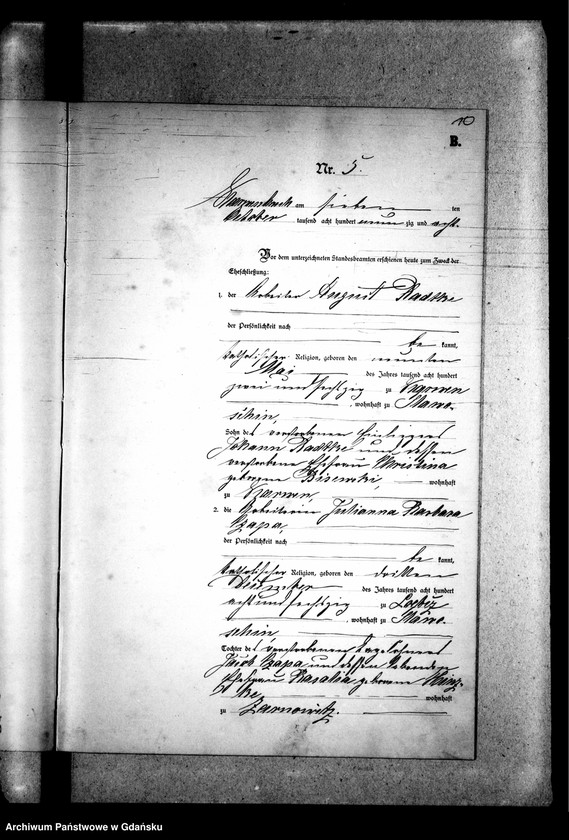 10
B.
Nr. 5.
am sieben ten
October tausend acht hundert neun zig und acht.
Vor dem unterzeichneten Standesbeamten erschienen heute zum Zweck der
Eheschließung:
1. der Arbeiter August Radtke
der Persönlichkeit nach
be kannt,
katholischer Religion, geboren den neunten
Mai des Jahres tausend acht hundert
zwei und sechszig zu
, wohnhaft zu
schin,
Sohn des verstorbenen Einliegers
Johann Radtke und dessen
verstorbene Ehefrau Christina
geborene wohnhaft
zu
2. die Arbeiterin Julianna Barbara
Czapa,
der Persönlichkeit nach
be kannt,
katholischer Religion, geboren den dritten
Dezember des Jahres tausend acht hundert
acht und sechszig zu
, wohnhaft zu
schin,
Tochter des verstorbenen Tagelöhners
Jacob Czapa und dessen lebenden
Ehefrau Rosalia geborene
ke wohnhaft
zu Zarnowitz.
Archiwum Państwowe w Gdańsku